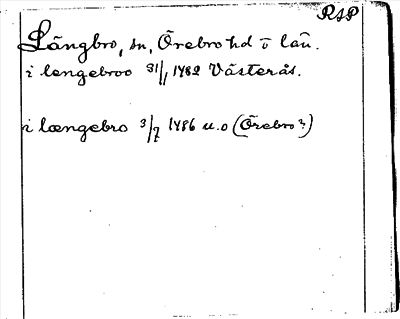 RAP
Långbro, sn, Örebro hd o län.
i lengebroo 31/1 1482 Västerås.
i længebro 3/7 1486 u.o (Örebro?)